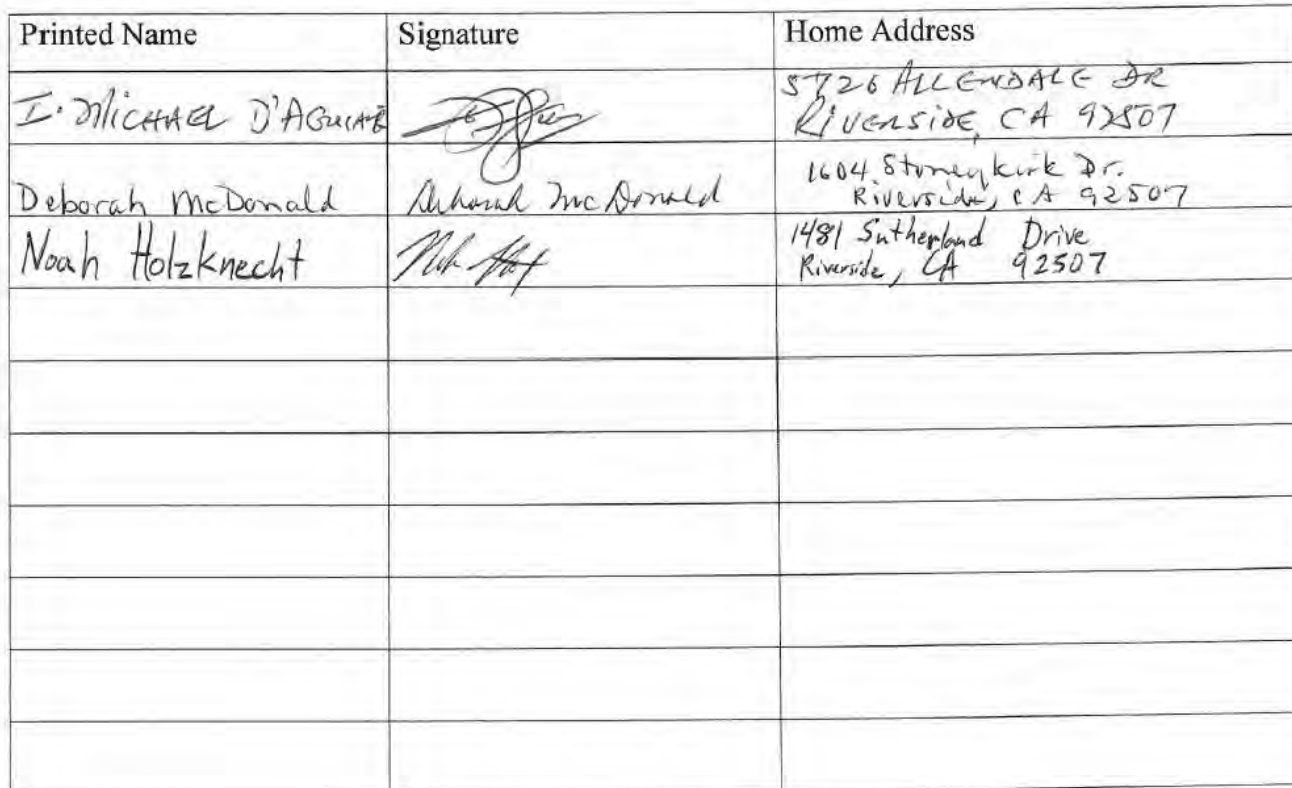 Printed Name Signature Home Address
I. MICHAEL D'AGUIAR
5726 ALLENDALE DR
RIVERSIDE, CA 92507
Deborah McDonald Deborah McDonald
1604 Stoneykirk Dr.
Riverside, CA 92507
Noah Holzknecht
1481 Sutherland Drive
Riverside, CA 92507